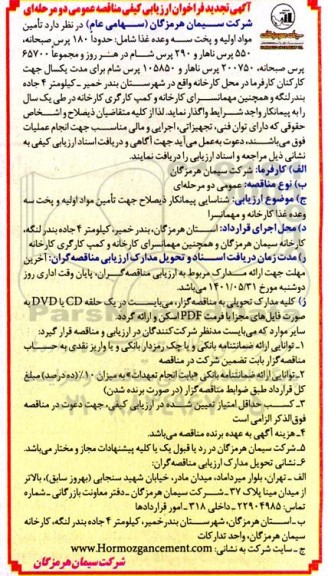 آگهی تجدید فراخوان ارزیابی کیفی مناقصه عمومی دو مرحله‌ای
شرکت سیمان هرمزگان (سهامی عام) در نظر دارد تأمین
مواد اولیه و پخت سه وعده غذا شامل: حدوداً ۱۸۰ پرس صبحانه،
۵۵۰ پرس ناهار و ۲۹۰ پرس شام در هر روز و مجموعا ۶۵۷۰۰
پرس صبحانه، ۲۰۰۷۵۰ پرس ناهار و ۱۰۵۸۵۰ پرس شام برای مدت یکسال جهت
کارکنان کارفرما در محل کارخانه واقع در شهرستان بندر خمیر - کیلومتر ۴ جاده
بندرلنگه و همچنین مهمانسرای کارخانه و کمپ کارگری کارخانه در طی یک سال
را به پیمانکار واجد شرایط واگذار نماید. لذا از کلیه متقاضیان ذیصلاح و اشخاص
حقوقی که دارای توان فنی، تجهیزاتی، اجرایی و مالی مناسب جهت انجام عملیات
فوق می‌باشند، دعوت به‌عمل می‌آید جهت آگاهی و دریافت اسناد ارزیابی کیفی به
نشانی ذیل مراجعه و اسناد ارزیابی را دریافت نمایند.
الف) کارفرما: شرکت سیمان هرمزگان
ب) نوع مناقصه: عمومی دو مرحله‌ای
ج) موضوع ارزیابی: شناسایی پیمانکار ذیصلاح جهت تأمین مواد اولیه و پخت سه
وعده غذا کارخانه و مهمانسرا
د) محل اجرای قرارداد: استان هرمزگان، بندر خمیر، کیلومتر ۴ جاده بندر لنگه،
کارخانه سیمان هرمزگان و همچنین مهمانسرای کارخانه و کمپ کارگری کارخانه
ر) مدت زمان دریافت اسناد و تحویل مدارک ارزیابی مناقصه‌گران: آخرین
مهلت جهت ارائه مدارک مربوط به ارزیابی مناقصه‌گران، پایان وقت اداری روز
دوشنبه مورخ ۱۴۰۱/۰۵/۳۱ می‌باشد.
ز) کلیه مدارک تحویلی به مناقصه‌گزار، می‌بایست در یک حلقه CD یا DVD به
صورت فایل‌های مجزا با فرمت PDF اسکن و ارائه گردد.
سایر موارد که می‌بایست مدنظر شرکت‌کنندگان در ارزیابی و مناقصه قرار گیرد:
۱- توانایی ارائه ضمانتنامه بانکی و یا چک رمزدار بانکی و یا واریز نقدی به حساب
مناقصه‌گزار بابت تضمین شرکت در مناقصه
۲- توانایی ارائه ضمانتنامه بانکی «بابت انجام تعهدات» به میزان ۱۰٪ (ده درصد) مبلغ
کل قرارداد طبق ضوابط مناقصه‌گزار (در صورت برنده شدن)
۳- کسب حداقل امتیاز تعیین شده در ارزیابی کیفی، جهت دعوت در مناقصه
فوق‌الذکر الزامی است
۴- هزینه آگهی به عهده برنده مناقصه می‌باشد.
۵- شرکت سیمان هرمزگان در رد یا قبول یک یا کلیه پیشنهادات مجاز و مختار می‌باشد.
۶- نشانی تحویل مدارک ارزیابی مناقصه‌گران:
الف - تهران، بلوار میرداماد، میدان مادر، خیابان شهید سنجابی (بهروز سابق)، بالاتر
از میدان مینا پلاک ۳۷ - شرکت سیمان هرمزگان - دفتر معاونت بازرگانی - شماره
تماس: ۲۲۹۰۴۹۸۵ - داخلی ۳۱۸ - امور قراردادها
ب- استان هرمزگان، شهرستان بندر خمیر، کیلومتر ۴ جاده بندر لنگه، کارخانه
سیمان هرمزگان، واحد تدارکات
ج - سایت شرکت به نشانی: www.Hormozgancement.com
شرکت سیمان هرمزگان